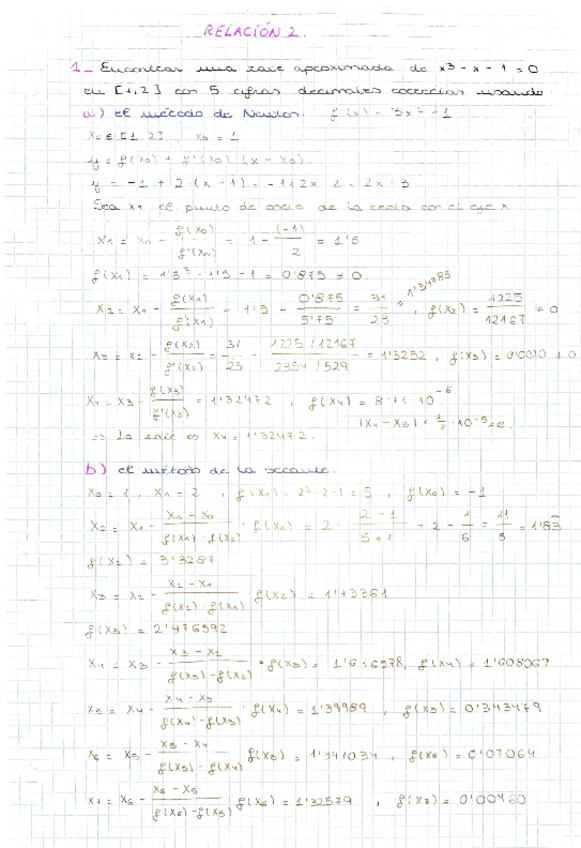 RELACIÓN 2.
1_ Encontrar una raíz aproximada de x³ - x - 1 = 0
en [1,2] con 5 cifras decimales correctas usando
a) el método de Newton. f'(x) = 3x² - 1
x₀ ∈ [1,2], x₀ = 1
y = f(x₀) + f'(x₀) (x - x₀).
y = -1 + 2·(x - 1) = -1 + 2x - 2 = 2x - 3
Sea x₁ el punto de corte de la recta con el eje x
x₁ = x₀ - f(x₀)/f'(x₀) = 1 - (-1)/2 = 1'5
f(x₁) = 1'5³ - 1'5 - 1 = 0'875 ≠ 0.
x₂ = x₁ - f(x₁)/f'(x₁) = 1'5 - 0'875/5'75 = 31/23 = 1'34783, f(x₂) = 1225/12167 ≠ 0
x₃ = x₂ - f(x₂)/f'(x₂) = 31/23 - (1225/12167)/(2354/529) = 1'3252, f(x₃) = 0'0020 ≠ 0
x₄ = x₃ - f(x₃)/f'(x₃) = 1'32472, f(x₄) = 8'71·10⁻⁶
|x₄ - x₃| < ½·10⁻⁵ = e.
⇒ La raíz es x₄ = 1'32472.
b) el método de la secante.
x₀ = 1, x₁ = 2, f(x₁) = 2³ - 2 - 1 = 5, f(x₀) = -1
x₂ = x₁ - (x₁ - x₀)/(f(x₁) - f(x₀)) · f(x₁) = 2 - (2 - 1)/(5 + 1) = 2 - 1/6 = 11/6 = 1'83
f(x₂) = 3'3287
x₃ = x₂ - (x₂ - x₁)/(f(x₂) - f(x₁)) f(x₂) = 1'73361
f(x₃) = 2'476592
x₄ = x₃ - (x₃ - x₂)/(f(x₃) - f(x₂)) · f(x₃) = 1'616578, f(x₄) = 1'608067
x₅ = x₄ - (x₄ - x₃)/(f(x₄) - f(x₃)) · f(x₄) = 1'39989, f(x₅) = 0'343479
x₆ = x₅ - (x₅ - x₄)/(f(x₅) - f(x₄)) f(x₅) = 1'341034, f(x₆) = 0'07064
x₇ = x₆ - (x₆ - x₅)/(f(x₆) - f(x₅)) f(x₆) = 1'32579, f(x₇) = 0'00460